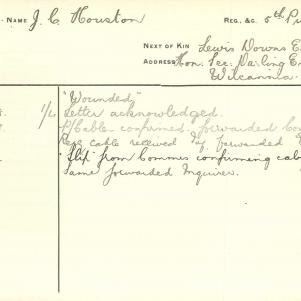 NAME J. C. Houston REG. &C. 5th Pi
NEXT OF KIN Lewis Downs E
ADDRESS Hon. Sec. Darling E
Wilcannia.
"Wounded"
1/2 Letter acknowledged.
P/Cable confirmed forwarded Co
Reg cable received & forwarded
"Slip" from Commes confirming cab
Same forwarded Inquirer.